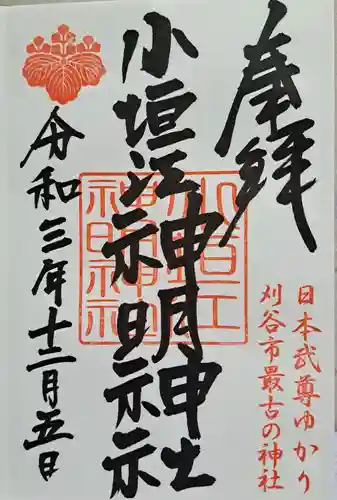 奉拝
日本武尊ゆかり
刈谷市最古の神社
小垣江神明神社
小垣江
神明神社
令和三年十二月五日